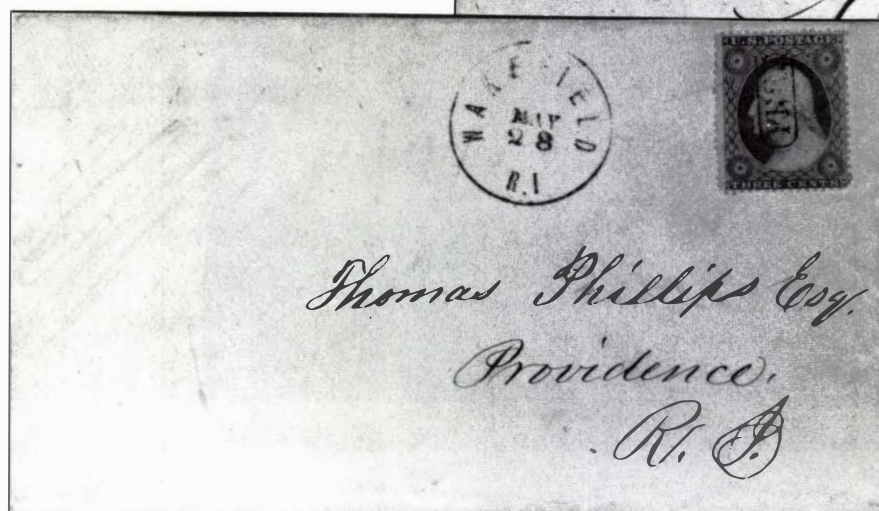 WAKEFIELD
MAY
28
R.I
U.S. POSTAGE
THREE CENTS
Thomas Phillips Esq.
Providence.
R. I.